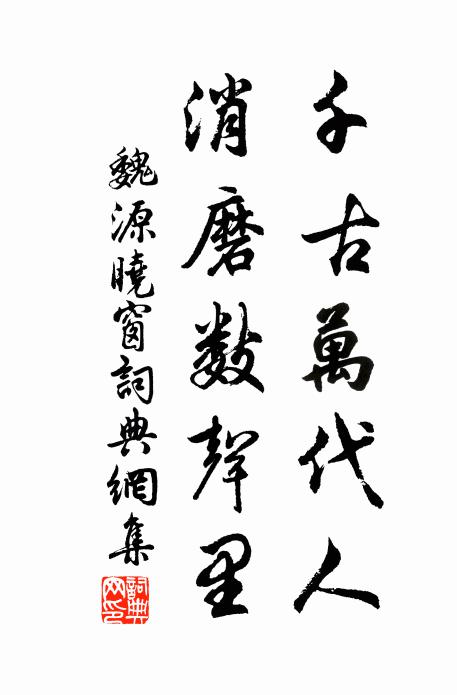 千古萬代人
消磨數聲里
魏源曉窗詞典網集
詞典网印